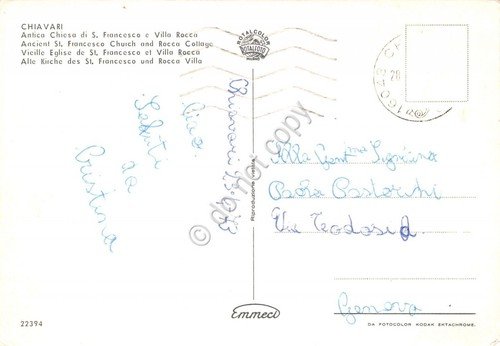 CHIAVARI
Antica Chiesa di S. Francesco e Villa Rocca
Ancient St. Francesco Church and Rocca Cottage
Vieille Eglise de St. Francesco et Villa Rocca
Alte Kirche des St. Francesco und Rocca Villa
ROTALCOLOR
ROTALFOTO
MILANO
16042 C
Chiavari
Ciao.
Saluti
da
Cristina
Riproduzione vietata
do not copy
Alla Gent.ma Signorina
Paola Pastorini
Via Teodosia
Genova
22394
Emmeci
DA FOTOCOLOR KODAK EKTACHROME